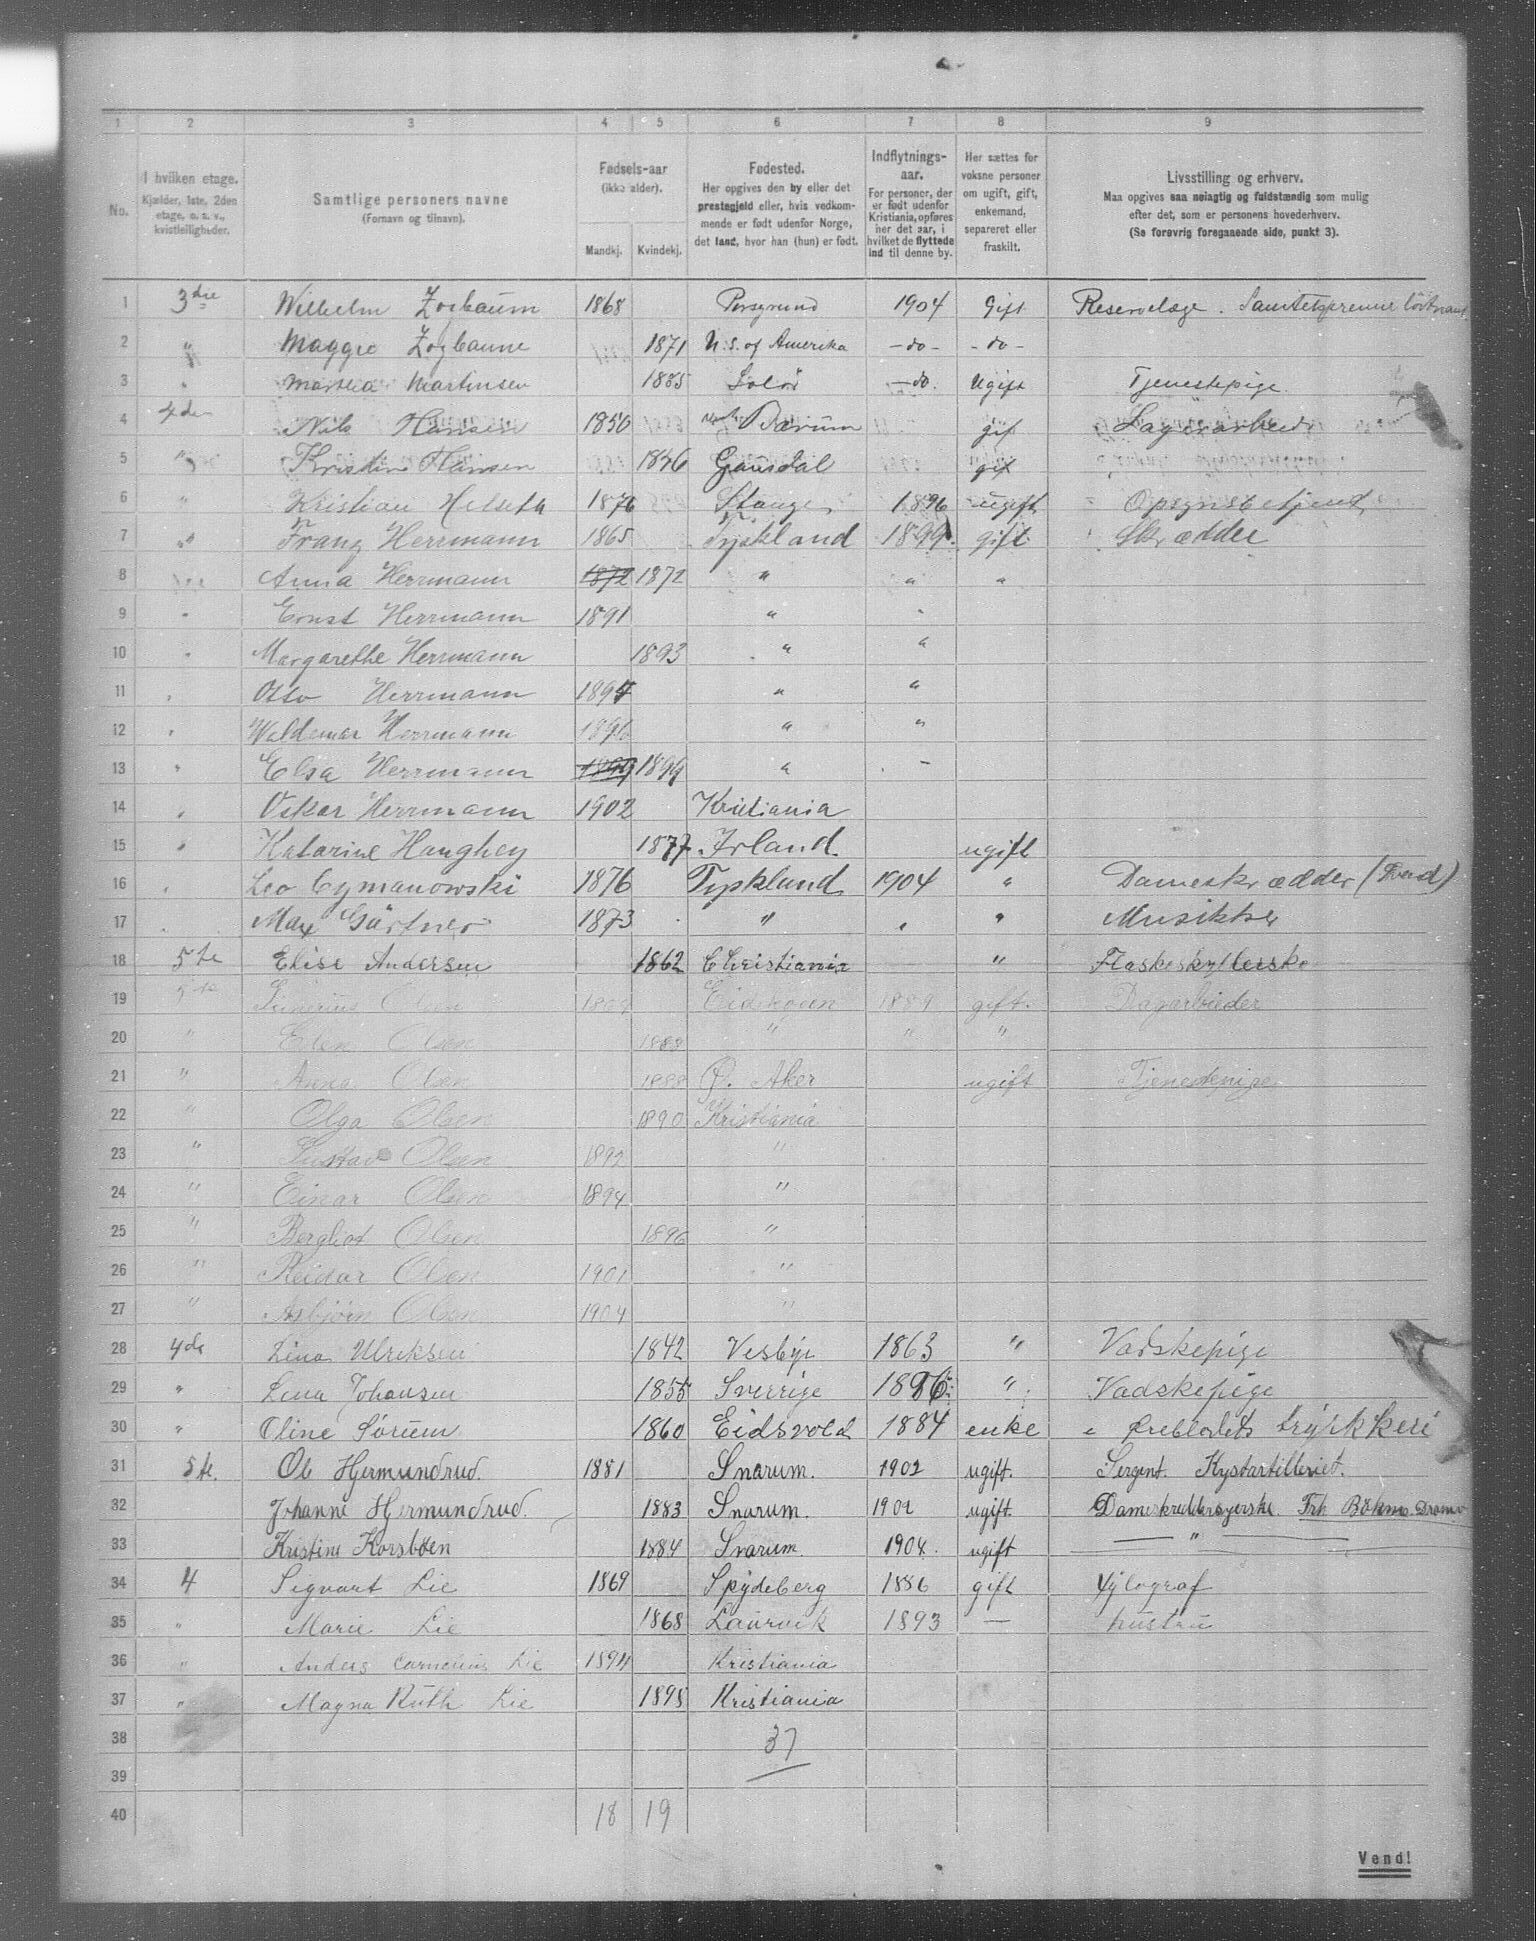 1 2 3 4 5 6 7 8 9
No. I hvilken etage. Kjælder, 1ste, 2den etage, o. s. v., kvistleiligheder. Samtlige personers navne (Fornavn og tilnavn). Fødsels-aar (ikke alder). Mandkj. Kvindekj. Fødested. Her opgives den by eller det prestegjeld eller, hvis vedkommende er født udenfor Norge, det land, hvor han (hun) er født. Indflytnings-aar. For personer, der er født udenfor Kristiania, opføres her det aar, i hvilket de flyttede ind til denne by. Her sættes for voksne personer om ugift, gift, enkemand, separeret eller fraskilt. Livsstilling og erhverv. Maa opgives saa nøiagtig og fuldstændig som mulig efter det, som er personens hovederhverv. (Se forøvrig foregaaende side, punkt 3).
1 3die Wilhelm Zogbaum 1868 Porsgrund 1904 Gift Reservelæge.
2 " Maggie Zogbaum 1871 U. S. of Amerika -do- -do-
3 " Martha Martinsen 1885 Solør -do- Ugift Tjenestepige
4 4de Nils Hansen 1850 Bærum gift Lagerarbeider
5 " Kristine Hansen 1856 Gausdal gift
6 " Kristian Helseth 1876 Stange 1896 ugift Opsynsbetjent
7 " Franz Herrmann 1865 Tyskland 1899 gift Skrædder
8 Anna Herrmann 1872 1872 " " "
9 " Ernst Herrmann 1891 " "
10 " Margarethe Herrmann 1893 " "
11 " Otto Herrmann 1894 " "
12 " Waldemar Herrmann 1896 " "
13 " Elsa Herrmann 1899 1899 " -
14 " Oskar Herrmann 1902 Kristiania
15 " Katarine Haughey 1877 Irland. ugift
16 " Leo Cymanowski 1876 Tyskland 1904 " Dameskrædder
17 Max Gärtner 1873 " " " Musikker
18 5te Elise Andersen 1862 Christiania " Flaskeskyllerske
19 5te Olsen Eidskogen 1889 gift. Dagarbeider
20 " Olsen 1888 " " "
21 " Anna Olsen 1888 Ø. Aker ugift Tjenestepige
22 " Olga Olsen 1890 Kristiania
23 " Gustav Olsen 1892 "
24 " Einar Olsen 1894 "
25 " Bergliot Olsen 1896 "
26 " Reidar Olsen 1901 "
27 " Asbjørn Olsen 1904 "
28 4de Lina Ulriksen 1842 Vestbye 1863 " Vadskepige
29 " Lena Johansen 1855 Sverrige 1896 " Vadskepige
30 " Oline Sørum 1860 Eidsvold 1884 enke Ørebladets trykkeri
31 5te. Ole Hjermundrud. 1881 Snarum. 1902 ugift. Sergent. Kystartilleriet.
32 Johanne Hjermundrud. 1883 Snarum. 1902 ugift.
33 Kristine Korsbøen 1884 Snarum. 1904. ugift — " —
34 4 Sigvart Lie 1869 Spydeberg 1886 gift Xylograf
35 " Marie Lie 1868 Laurvik 1893 — hustru
36 " Anders Cornelius Lie 1894 Kristiania
37 " Magna Ruth Lie 1898 Kristiania
38 37
39
40 18 19
Vend!